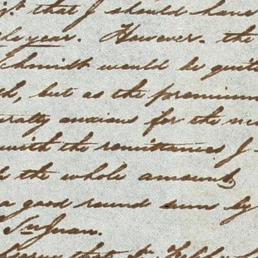 that I should have
year. However, the
Schmidt would be quite
but as the premium
anxious for the
with the remittances I
the whole amount
a good round sum by
Juan.
that